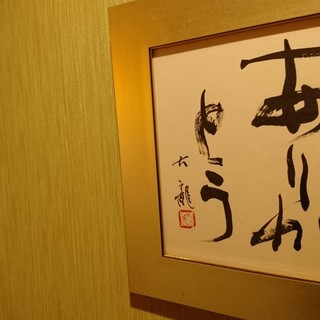 ありが
とう
大龍